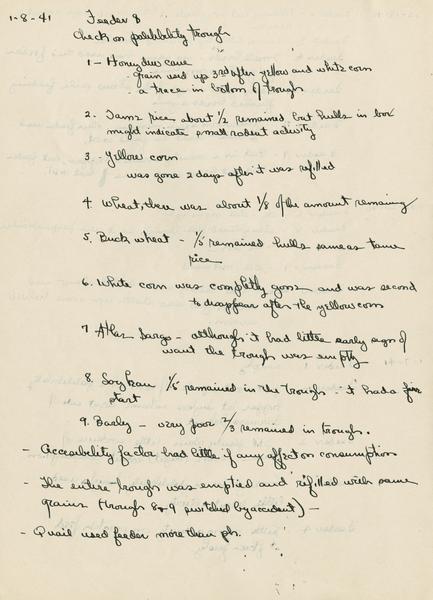 1-8-41 Feeder 8
Check on palatibility trough
1 - Honeydew cane
grain used up 3rd after yellow and white corn
. a trace in bottom of trough
2. Tame rice about 1/2 remained, but hulls in box
might indicate small rodent activity
3. Yellow corn
was gone 2 days after it was refilled
4. Wheat, there was about 1/8 of the amount remaining
5. Buck wheat - 1/5 remained hulls same as tame
rice
6. White corn was completly gone and was second
to disappear after the yellow corn
7 Atlas Sargo - although it had little early sign of
want the trough was empty
8. Soy bean 1/5 remained in the trough - it had a
start
9. Barley - very poor 2/3 remained in trough.
- Accessibility factor had little if any affect on consumption
- The entire trough was emptied and refilled with same
grains (trough 8 & 9 switched by accident) -
- Quail used feeder more than ph.